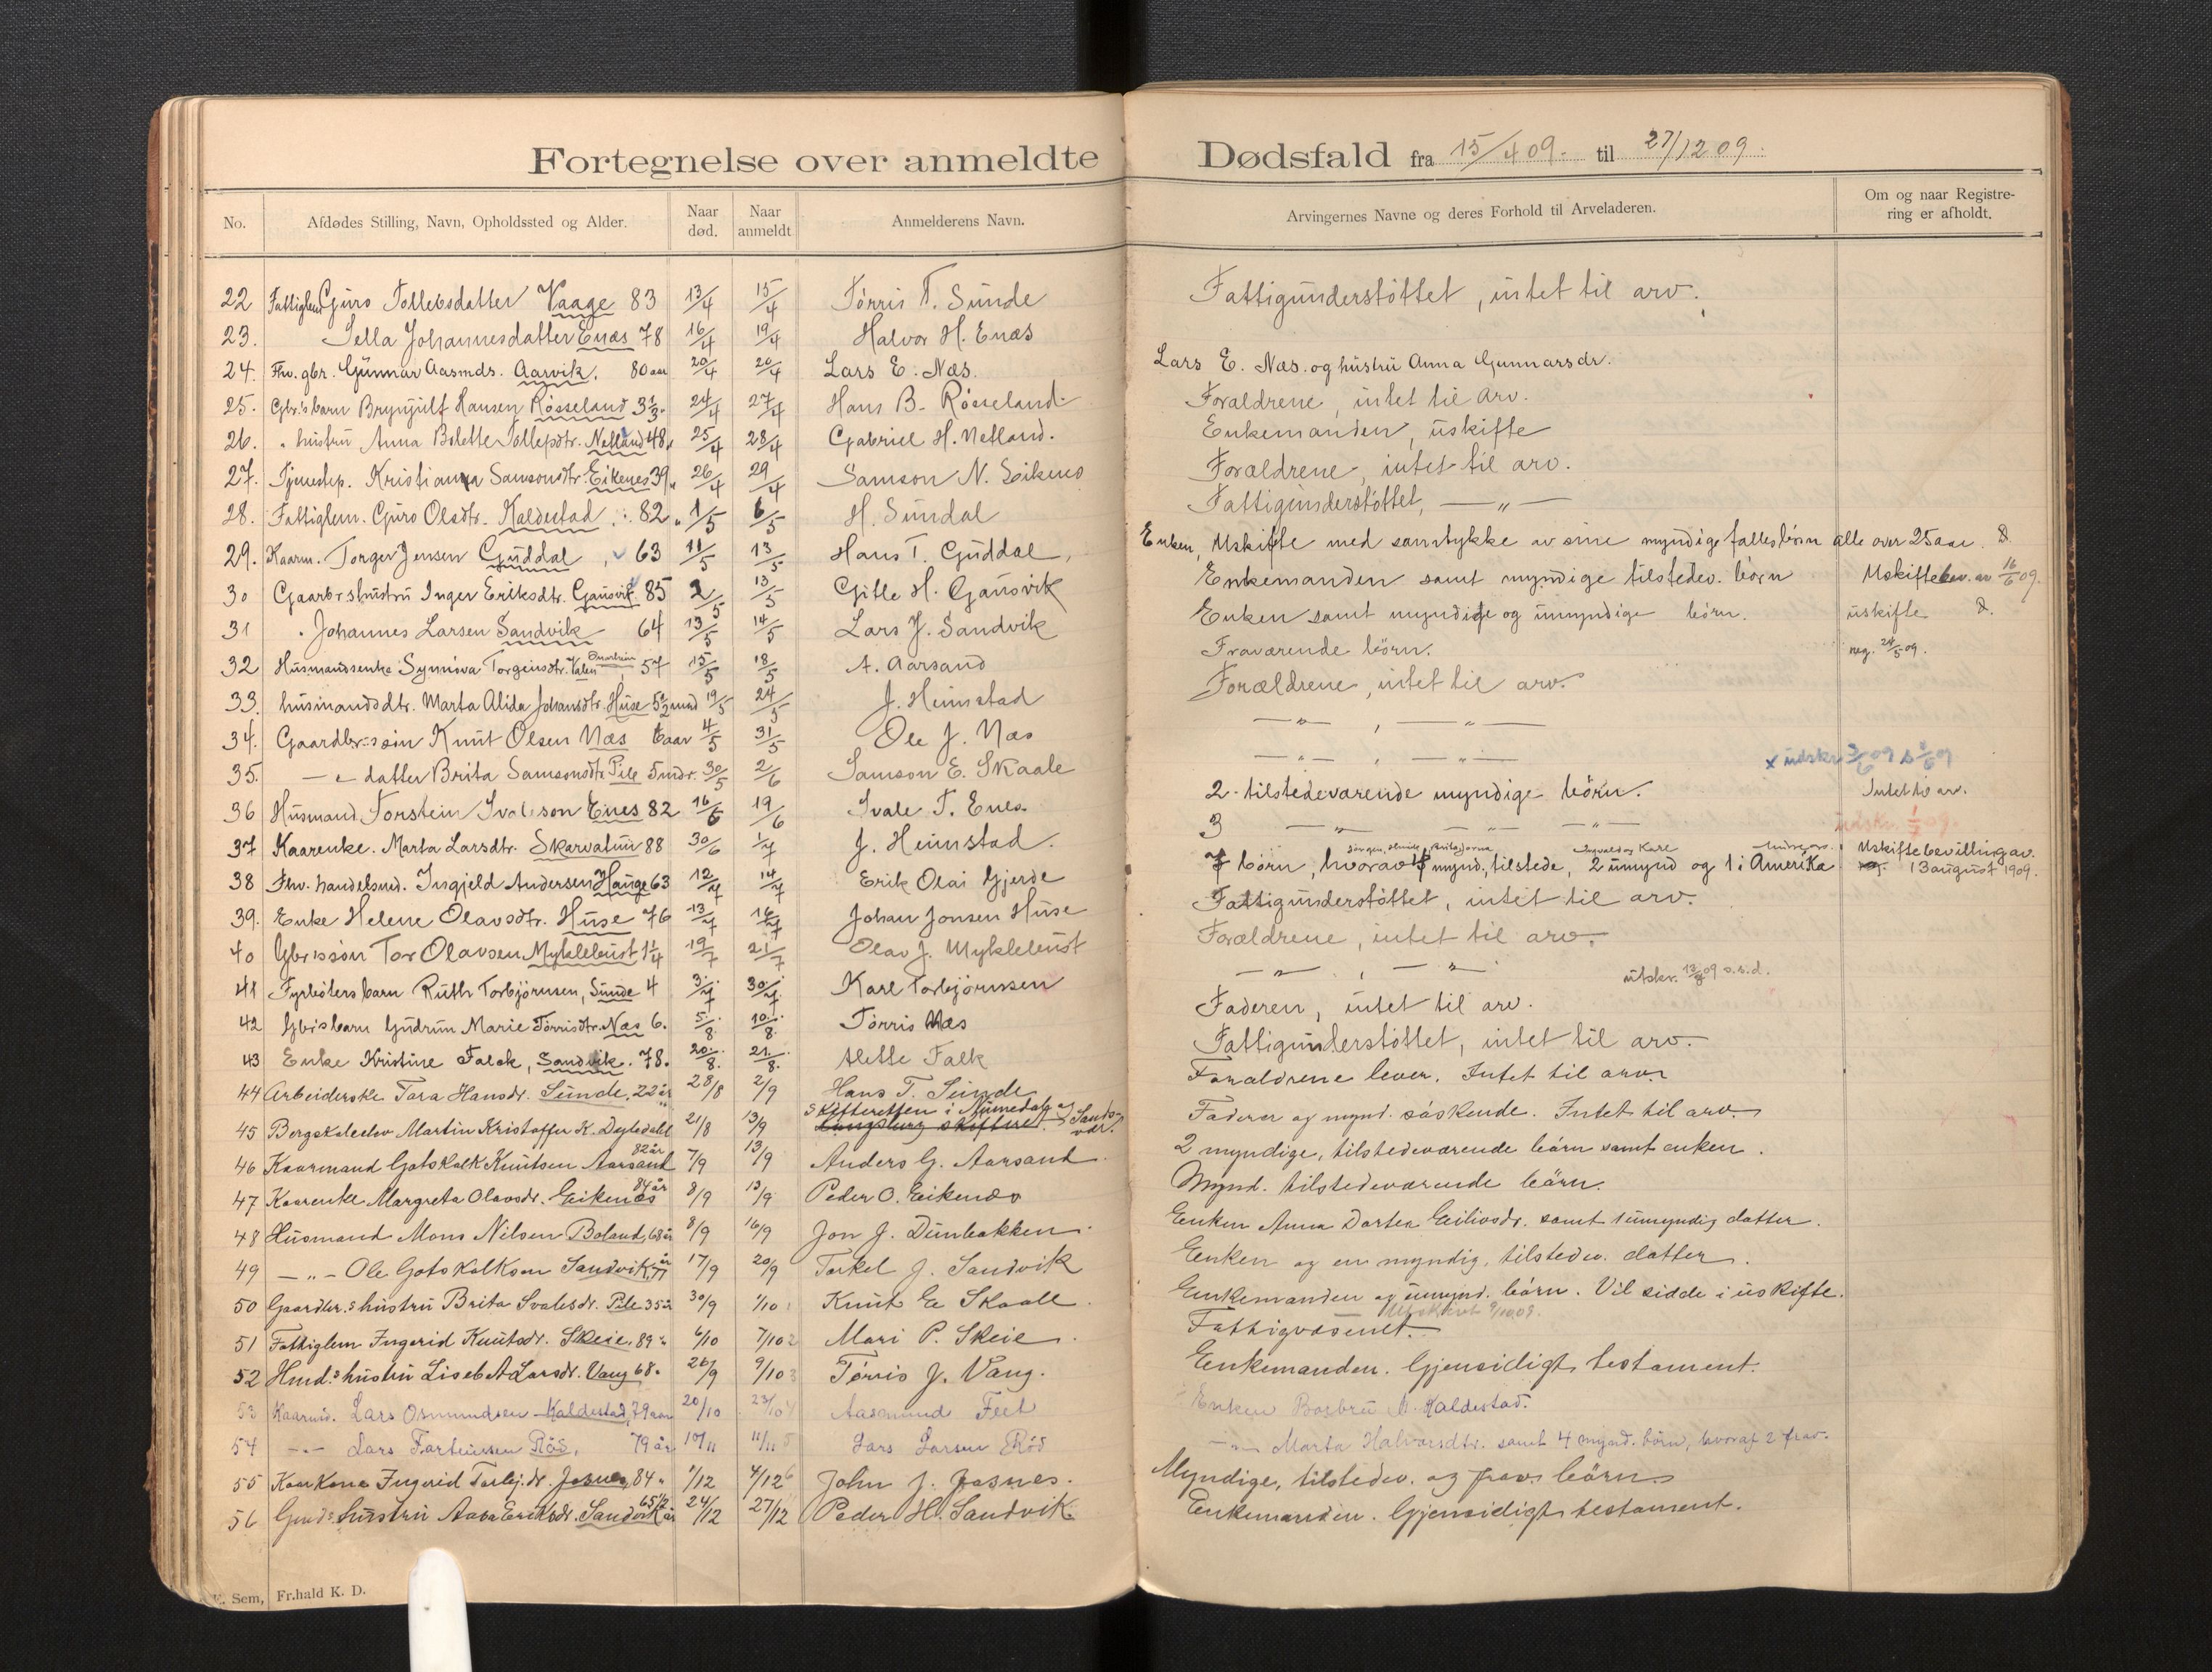 Fortegnelse over anmeldte Dødsfald fra 15/4 09. til 27/12 09.
No. Afdødes Stilling, Navn, Opholdssted og Alder. Naar død. Naar anmeldt Anmelderens Navn. Arvingernes Navne og deres Forhold til Arveladeren. Om og naar Registrering er afholdt.
22 Fattiglem Guro Tollevsdatter Vaage 83 13/4 15/4 Tørris T. Sunde Fattigunderstøttet, intet til arv.
23. Sella Johannesdatter Enæs 78 16/4 19/4 Halvor H. Enæs
24. Fhv. gbr. Gunnar Aasmds. Aarvik. 80 aar 20/4 20/4 Lars E. Næs. Lars E. Næs. og hustru Anna Gunnarsdr.
25. Gbr.s barn Brynjulf Hansen Røsseland 3 1/3 24/4 27/4 Hans B. Røsseland Forældrene, intet til arv.
26. " hustru Anna Bolette Tollefsdtr. Netland 48 25/4 28/4 Gabriel H. Netland. Enkemanden, uskifte
27. Tjenestep. Kristianna Samsonsdtr. Eikenes 39 26/4 29/4 Samson N. Eikenes Forældrene, intet til arv.
28. Fattiglem. Guro Olsdtr. Kaldestad 82 1/5 6/5 H. Sundal Fattigunderstøttet, — " —
29. Kaarm. Torger Jensen Guddal 63 11/5 13/5 Hans T. Guddal, Enken, Uskifte med samtykke av sine myndige fællesbörn alle over 25 aar.
30 Gaardbr.s hustru Inger Eriksdtr. Gausvik 85 2/5 13/5 Gitle H. Gausvik Enkemanden samt myndige tilstedev. börn Uskiftebev. av 16/6 09.
31 " Johannes Larsen Sandvik 64 13/5 14/5 Lars J. Sandvik Enken samt myndige og umyndige börn. uskifte
32 Husmandsenke Synnöva Torgeirsdtr. Valen 57 15/5 18/5 A. Aarsand Fraværende börn. reg. 24/5 09.
33. husmandsdtr. Marta Alida Johansdtr. Huse 5 1/2 mnd 19/5 24/5 J. Heimstad Forældrene, intet til arv.
34. Gaardbr.s sön Knut Olsen Næs 6 aar 4/5 31/5 Ole J. Næs — " — , — " —
35. — " — datter Brita Samsonsdtr. Pile 5 mdr. 30/5 2/6 Samson E. Skaale — " — , — " — x udskr.
36 Husmand Torstein Ivarson Enes 82 16/6 19/6 Ivale T. Enes 2 tilstedeværende myndige börn. Intet til arv.
37 Kaarenke. Marta Larsdtr. Skarvatun 88 30/6 1/7 J. Heimstad. 3 — " — — " — — " — udskr. 1/7 09.
38 Fhv. handelsmd. Ingjeld Andersen Hauge 63 12/7 14/7 Erik Olai Gjerde 7 börn, hvorav 4 mynd., tilstede, 2 umynd og 1 i Amerika. Uskiftebevilling av. 13 august 1909.
39. Enke Helene Olavsdtr. Huse 76 13/7 16/7 Johan Jonsen Huse Fattigunderstöttet, intet til arv.
40 Gbr.s sön Tor Olavsen Myklebust 1 1/4 19/7 21/7 Olav J. Myklebust Forældrene, intet til arv.
41 Fyrböters barn Ruth Torbjörnsen, Sunde 4 3/7 30/7 Karl Torbjörnsen — " — , — " — utskr. 13/8 09 o.s.d.
42 Gbr.s barn Gudrun Marie Tørrisdtr. Næs 6. 5/8. 10/8. Tørris Næs Faderen, intet til arv.
43 Enke Kristine Falck, Sandvik. 78. 20/8. 21/8. Alette Falk Fattigunderstöttet, intet til arv.
44 Arbeiderske Tora Hansdr. Sunde, 22 år 28/8 2/9 Hans T. Sunde Forældrene lever. Intet til arv.
45 Bergskaleelev Martin Kristoffer K. Dyledahl 21/8 13/9 Skifteretten i Numedal og Sandsvær. Faderen og mynd. söskende. Intet til arv.
46 Kaarmand Gotskalk Knutsen Aarsand 82 år 7/9 13/9 Anders G. Aarsand 2 myndige, tilstedeværende börn samt enken.
47 Kaarenke Margreta Olavsdr. Eikenæs 84 år 8/9 13/9 Peder O. Eikenæs Mynd. tilstedeværende börn.
48 Husmand Mons Nilsen Boland, 68 år 8/9 16/9 Jon J. Dunbakken Enken Anna Dortea Eilivsdr. samt 1 umyndig datter.
49 — " — Ole Gotskalksen Sandvik, 77 år 17/9 20/9 Torkel J. Sandvik Enken og en myndig, tilstedev. datter.
50 Gaardbr.s hustru Brita Ivalesdr. Pile 35 år 30/9 1/10 Knut E Skaale Enkemanden og umynd. börn. Vil sidde i uskifte.
51 Fattiglem Ingerid Knutsdr. Skeie, 89 " 6/10 7/10 Mari P. Skeie Fattigvæsenet. Utskrevet 9/10 09.
52 Hmd.s hustru Lisebet Larsdr. Vang 68. 26/9 9/10 Tørris J. Vang. Enkemanden. Gjensidigt testament.
53 Kaarmd. Lars Osmundsen Kaldestad, 79 aar 20/10 23/10 Aasmund Feet Enken Barbru Kaldestad.
54 — " — Lars Torbeinsen Röd, 79 år 10/11 11/11 Lars Larsen Röd — " — Marta Halvorsdtr. samt 4 mynd. börn, hvoraf 2 frav.
55 Kaarkone Ingerid Torbj.dr. Josnes, 84 " 1/12 4/12 John J. Josnes. Myndige, tilstedev. og frav. börn
56 Gmds hustru Aasa Eriksdr. Sandvik 65 1/2 år 24/12 27/12 Peder H. Sandvik Enkemanden. Gjensidigt testament.
E. Sem, Fr.hald K. D.